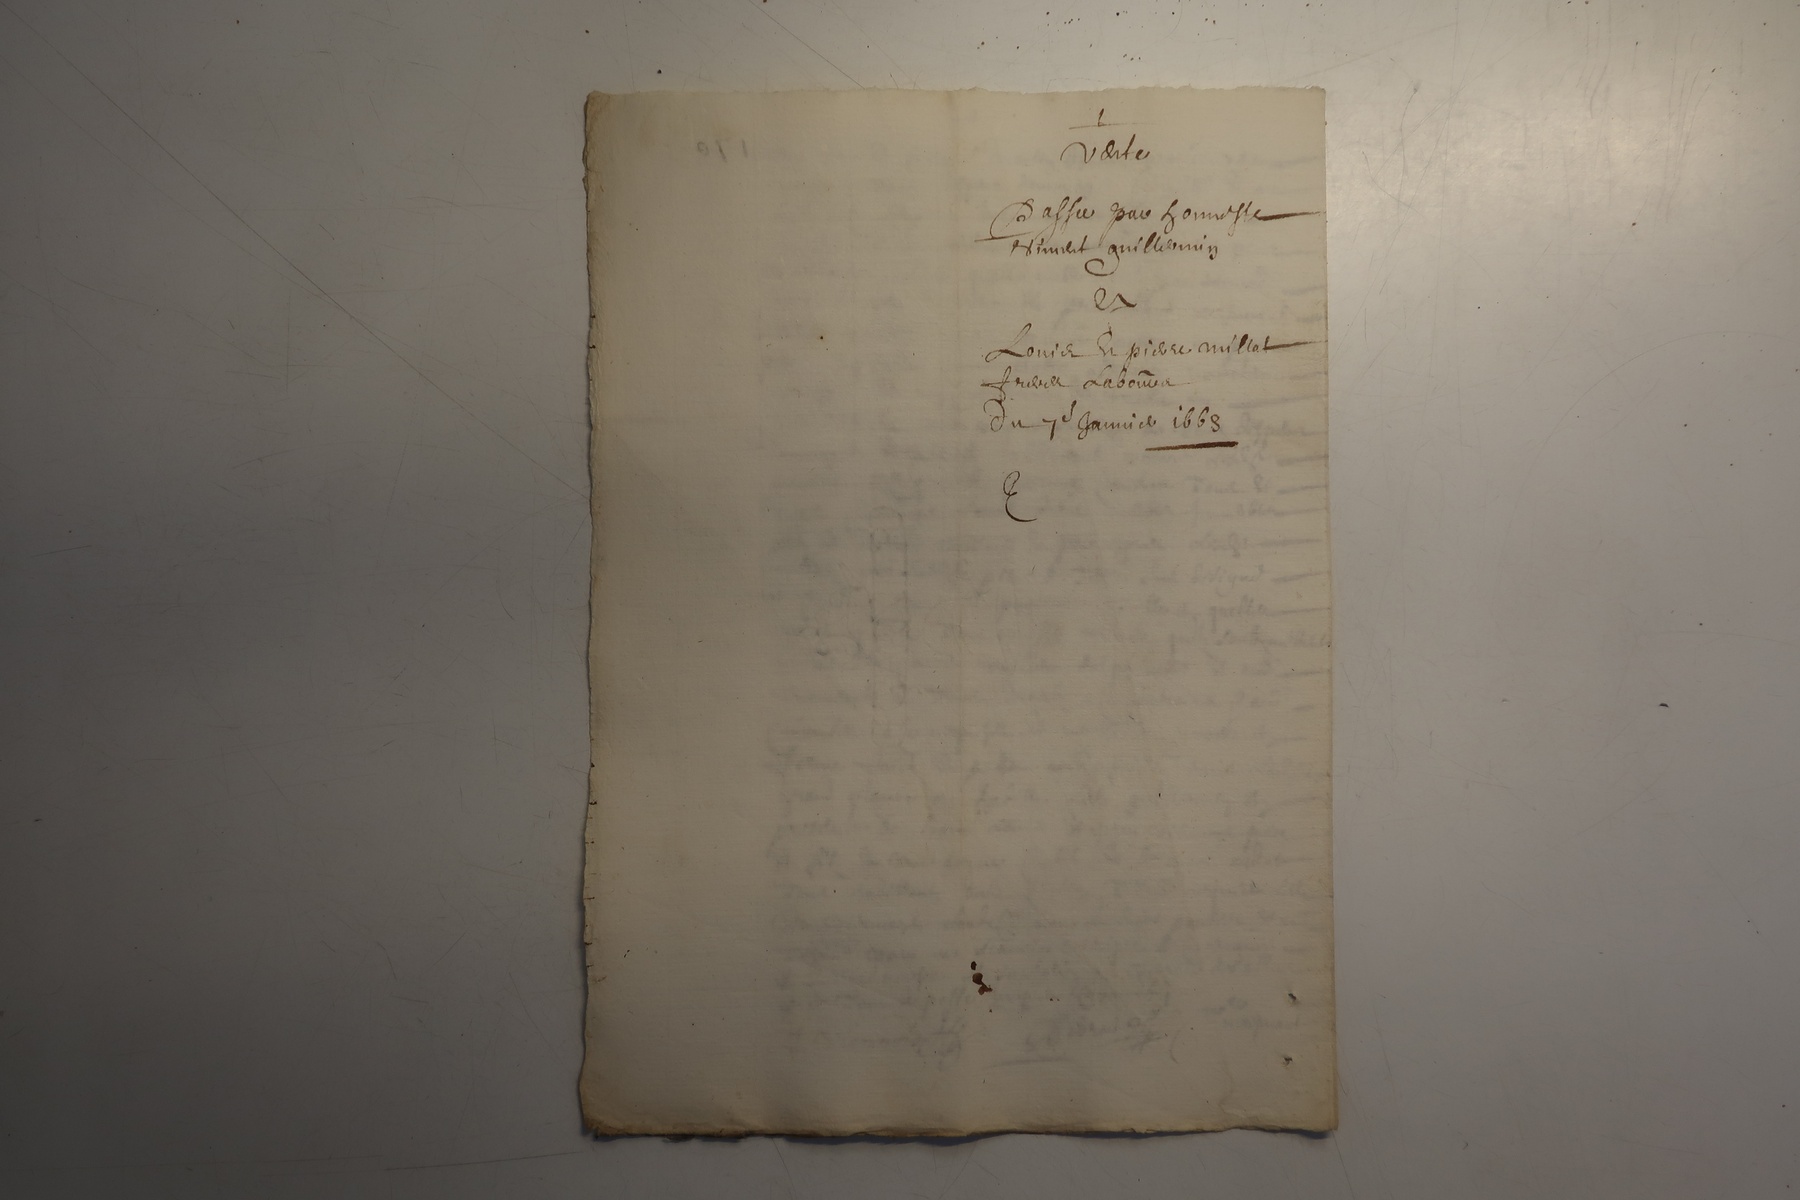 1
Vente
Passee par honneste
Vincent guillermin
Et
Louis Et pierre millat
freres Laboure
Du 7e Janvier 1663